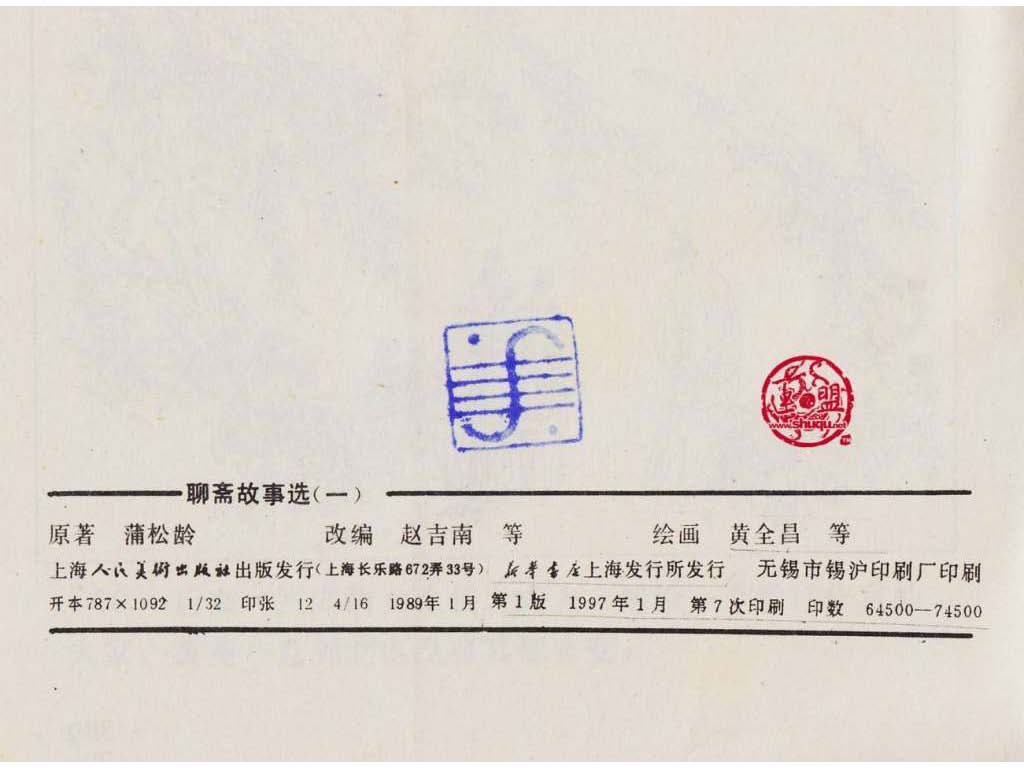 盟
www.shuqu.net
TM
聊斋故事选(一)
原著 蒲松龄 改编 赵吉南 等 绘画 黄全昌 等
上海人民美術出版社出版发行(上海长乐路672弄33号) 新华书店上海发行所发行 无锡市锡沪印刷厂印刷
开本787×1092 1/32 印张 12 4/16 1989年1月 第1版 1997年1月 第7次印刷 印数 64500—74500